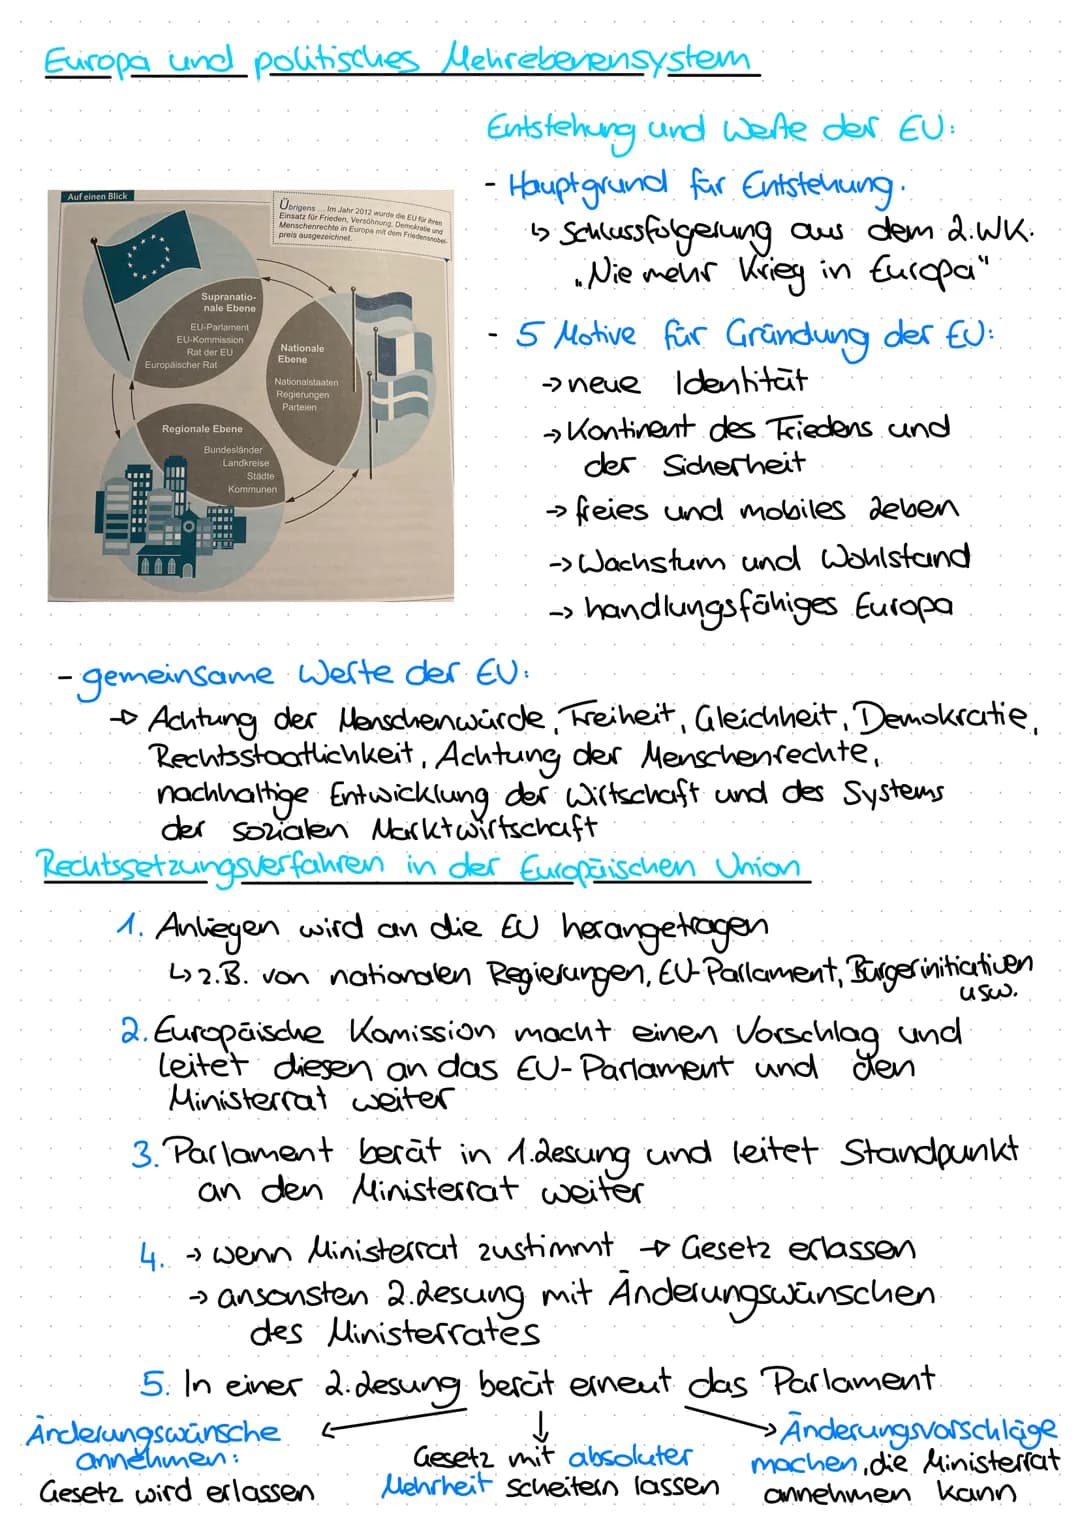 Europa und politisches Mehrebenensystem
Entstehung und Werte der EU:
- Hauptgrund für Entstehung.
↳ Schlussfolgerung aus dem 2.WK.
"Nie mehr Krieg in Europa"
- 5 Motive für Gründung der EU:
→ neue Identität
→ Kontinent des Friedens und
der Sicherheit
→ freies und mobiles Leben
→ Wachstum und Wohlstand
→ handlungsfähiges Europa
Auf einen Blick
Übrigens ... Im Jahr 2012 wurde die EU für ihren
Einsatz für Frieden, Versöhnung, Demokratie und
Menschenrechte in Europa mit dem Friedensnobel-
preis ausgezeichnet.
Supranatio-
nale Ebene
EU-Parlament
EU-Kommission
Rat der EU
Europäischer Rat
Nationale
Ebene
Nationalstaaten
Regierungen
Parteien
Regionale Ebene
Bundesländer
Landkreise
Städte
Kommunen
- gemeinsame Werte der EU:
→ Achtung der Menschenwürde, Freiheit, Gleichheit, Demokratie,
Rechtsstaatlichkeit, Achtung der Menschenrechte,
nachhaltige Entwicklung der Wirtschaft und des Systems
der sozialen Marktwirtschaft
Rechtssetzungsverfahren in der Europäischen Union
1. Anliegen wird an die EU herangetragen
↳ z.B. von nationalen Regierungen, EU-Parlament, Bürgerinitiativen
usw.
2. Europäische Komission macht einen Vorschlag und
leitet diesen an das EU-Parlament und den
Ministerrat weiter
3. Parlament berät in 1.Lesung und leitet Standpunkt
an den Ministerrat weiter
4. → wenn Ministerrat zustimmt → Gesetz erlassen
→ ansonsten 2.Lesung mit Änderungswünschen
des Ministerrates
5. In einer 2.Lesung berät erneut das Parlament
Änderungswünsche
annehmen:
Gesetz wird erlassen
Gesetz mit absoluter
Mehrheit scheitern lassen
Änderungsvorschläge
machen, die Ministerrat
annehmen kann